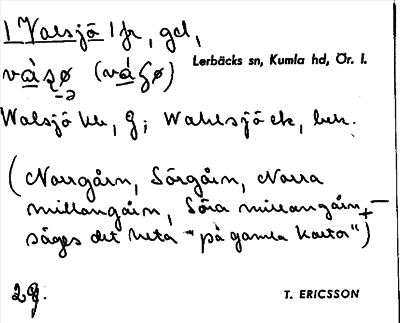 1 Valsjö 1 fr, gd,
Lerbäcks sn, Kumla hd, Ör. l.
Walsjö kb, g; Wahlsjö ek, ber.
(Norrgåɽn, Sörgåɽn, Norra
millangåɽn, Söra millangåɽn
säges det heta "på gamla kartor")
2g.
T. ERICSSON